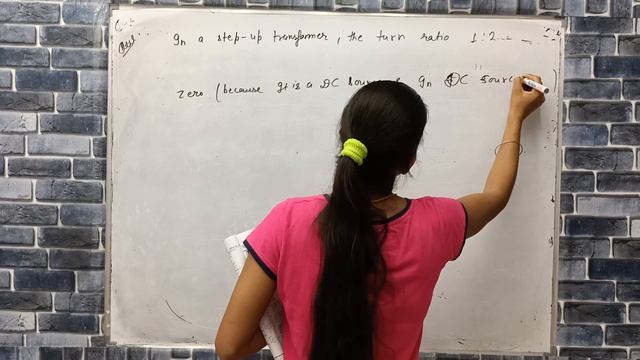 Ques:
In a step-up transformer, the turn ratio 1:2 -- -- --
Zero (because It is a DC In DC